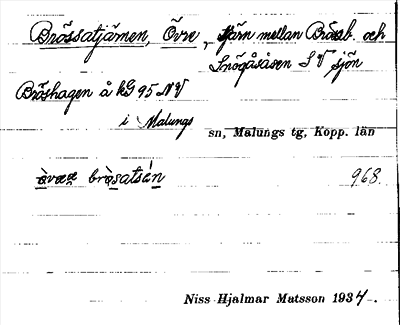 Brössatjärnen, Övre, tjärn mellan Brössb. och
Snögåsåsen S V sjön
Bröshagen å kG 95 NV
i Malungs sn, Malungs tg, Kopp. län
brøsatsén 968.
Niss Hjalmar Matsson 1934.